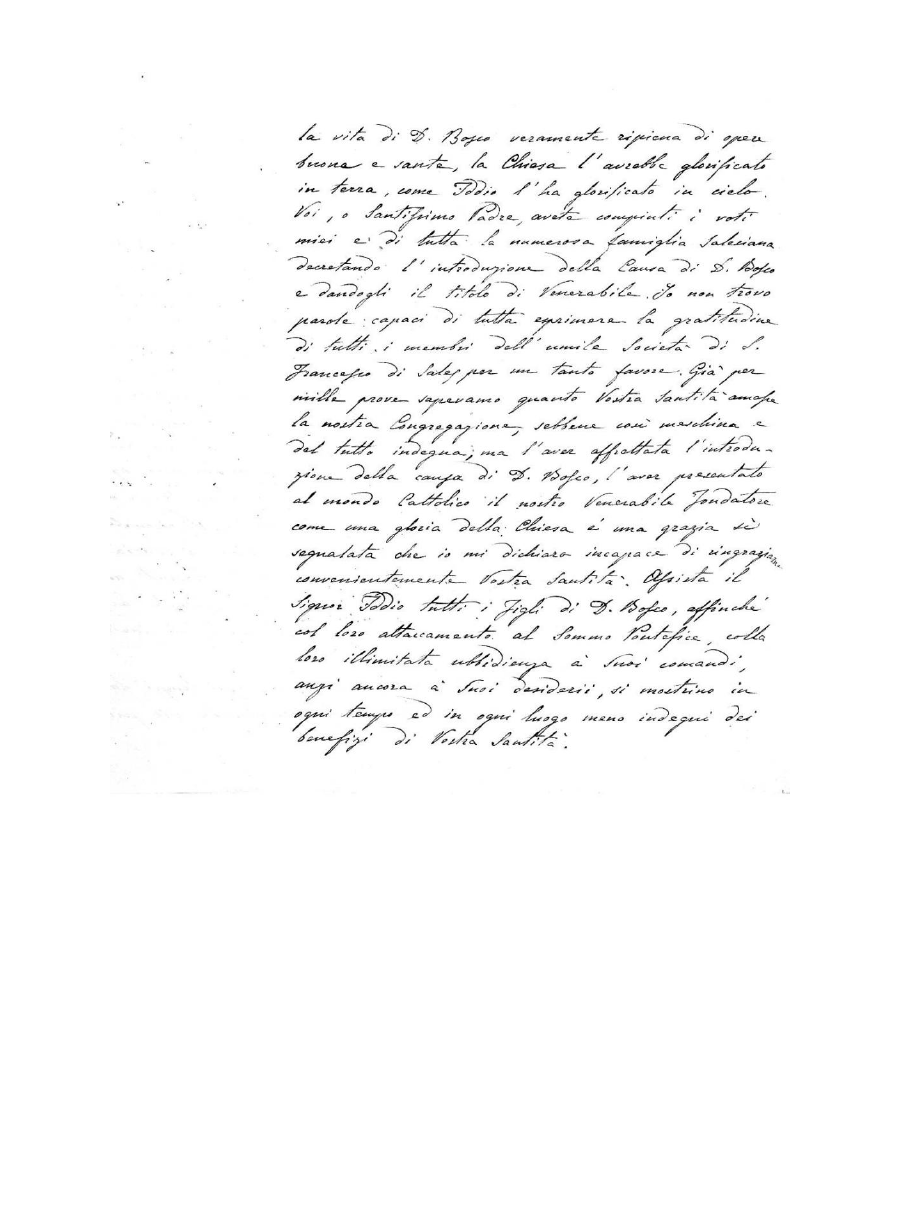 la vita di D. Bosco veramente ripiena di opere
buone e sante, la Chiesa l'avrebbe glorificato
in terra, come Iddio l'ha glorificato in cielo.
Voi, o Santissimo Padre, avete compiuti i voti
miei e di tutta la numerosa famiglia Salesiana
decretando l'introduzione della Causa di D. Bosco
e dandogli il titolo di Venerabile. Io non trovo
parole capaci di tutta esprimere la gratitudine
di tutti i membri dell'umile Società di S.
Francesco di Sales per un tanto favore. Già per
mille prove sapevamo quanto Vostra Santità amasse
la nostra Congregazione, sebbene così meschina e
del tutto indegna; ma l'aver affrettata l'introdu-
zione della causa di D. Bosco, l'aver presentato
al mondo Cattolico il nostro Venerabile Fondatore
come una gloria della Chiesa è una grazia sì
segnalata che io mi dichiaro incapace di ringraziare
convenientemente Vostra Santità. Assista il
Signor Iddio tutti i Figli di D. Bosco, affinché
col loro attaccamento al Sommo Pontefice, colla
loro illimitata ubbidienza à Suoi comandi,
anzi ancora à Suoi desiderii, si mostrino in
ogni tempo ed in ogni luogo meno indegni dei
benefizi di Vostra Santità.